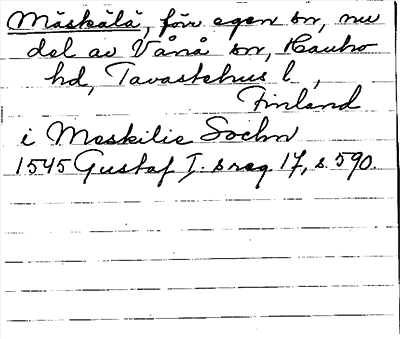 Mäskälä, förr egen sn, nu
del av Vånå sn, Hauho
hd, Tavastehus l,
Finland
i Meskilie Sochn
1545 Gustaf I:s reg. 17, s. 590.